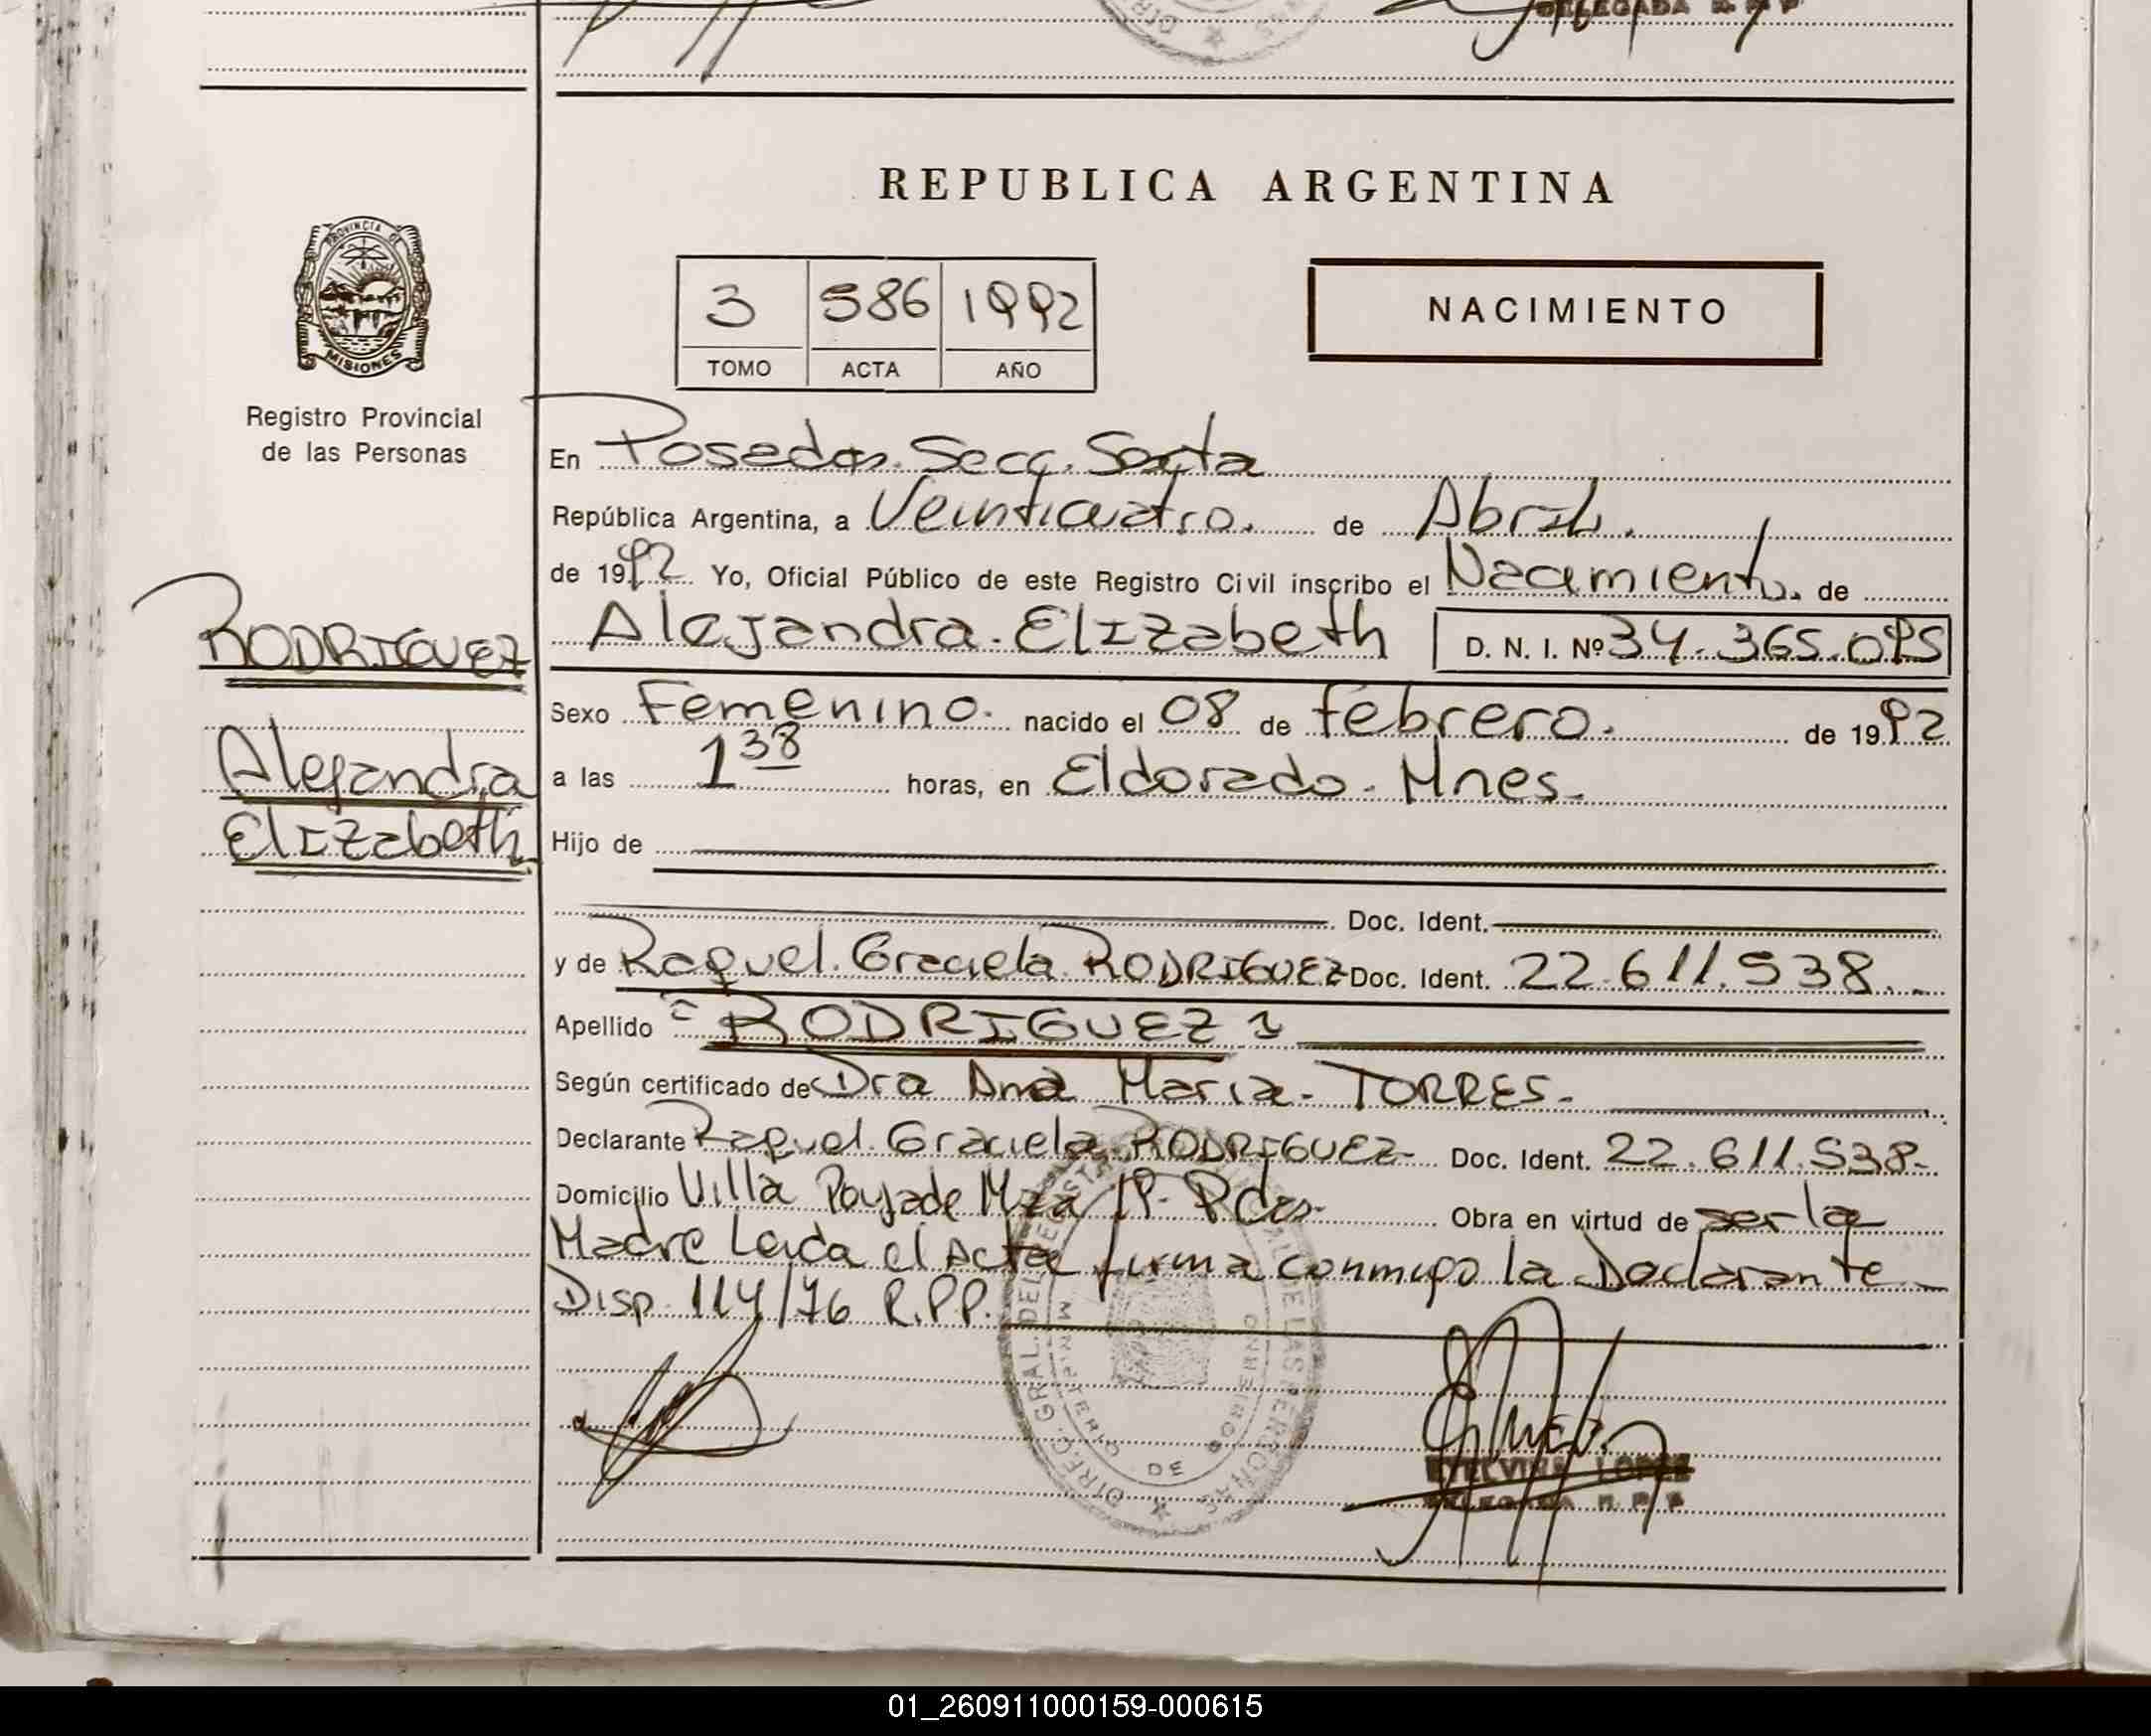 DELEGADA R P P
REPUBLICA ARGENTINA
PROVINCIA DE
MISIONES
Registro Provincial
de las Personas
3 586 1992
TOMO ACTA AÑO
NACIMIENTO
En Posadas. Secc. Sexta
República Argentina, a Veinticuatro. de Abril.
de 1992 Yo, Oficial Público de este Registro Civil inscribo el Nacimiento. de
Alejandra. Elizabeth D. N. I. Nº 34.365.095
RODRIGUEZ
Alejandra
Elizabeth
Sexo Femenino. nacido el 08 de febrero. de 1992
a las 1 38 horas, en Eldorado. Mnes.
Hijo de
Doc. Ident.
y de Raquel. Graciela RODRIGUEZ Doc. Ident. 22.611.538.
Apellido = RODRIGUEZ
Según certificado de Dra Ana Maria. TORRES.
Declarante Raquel. Graciela RODRIGUEZ Doc. Ident. 22.611.538.
Domicilio Villa Poujade Mza 19. Pdas. Obra en virtud de ser la
Madre Leida el Acta firma conmigo la Declarante
Disp. 114/76 R.P.P.
DIREC. GRAL DEL REGISTRO DE LAS PERSONAS
MINISTERIO DE GOBIERNO
LOPEZ
DELEGADA R. P. P.
01_260911000159-000615